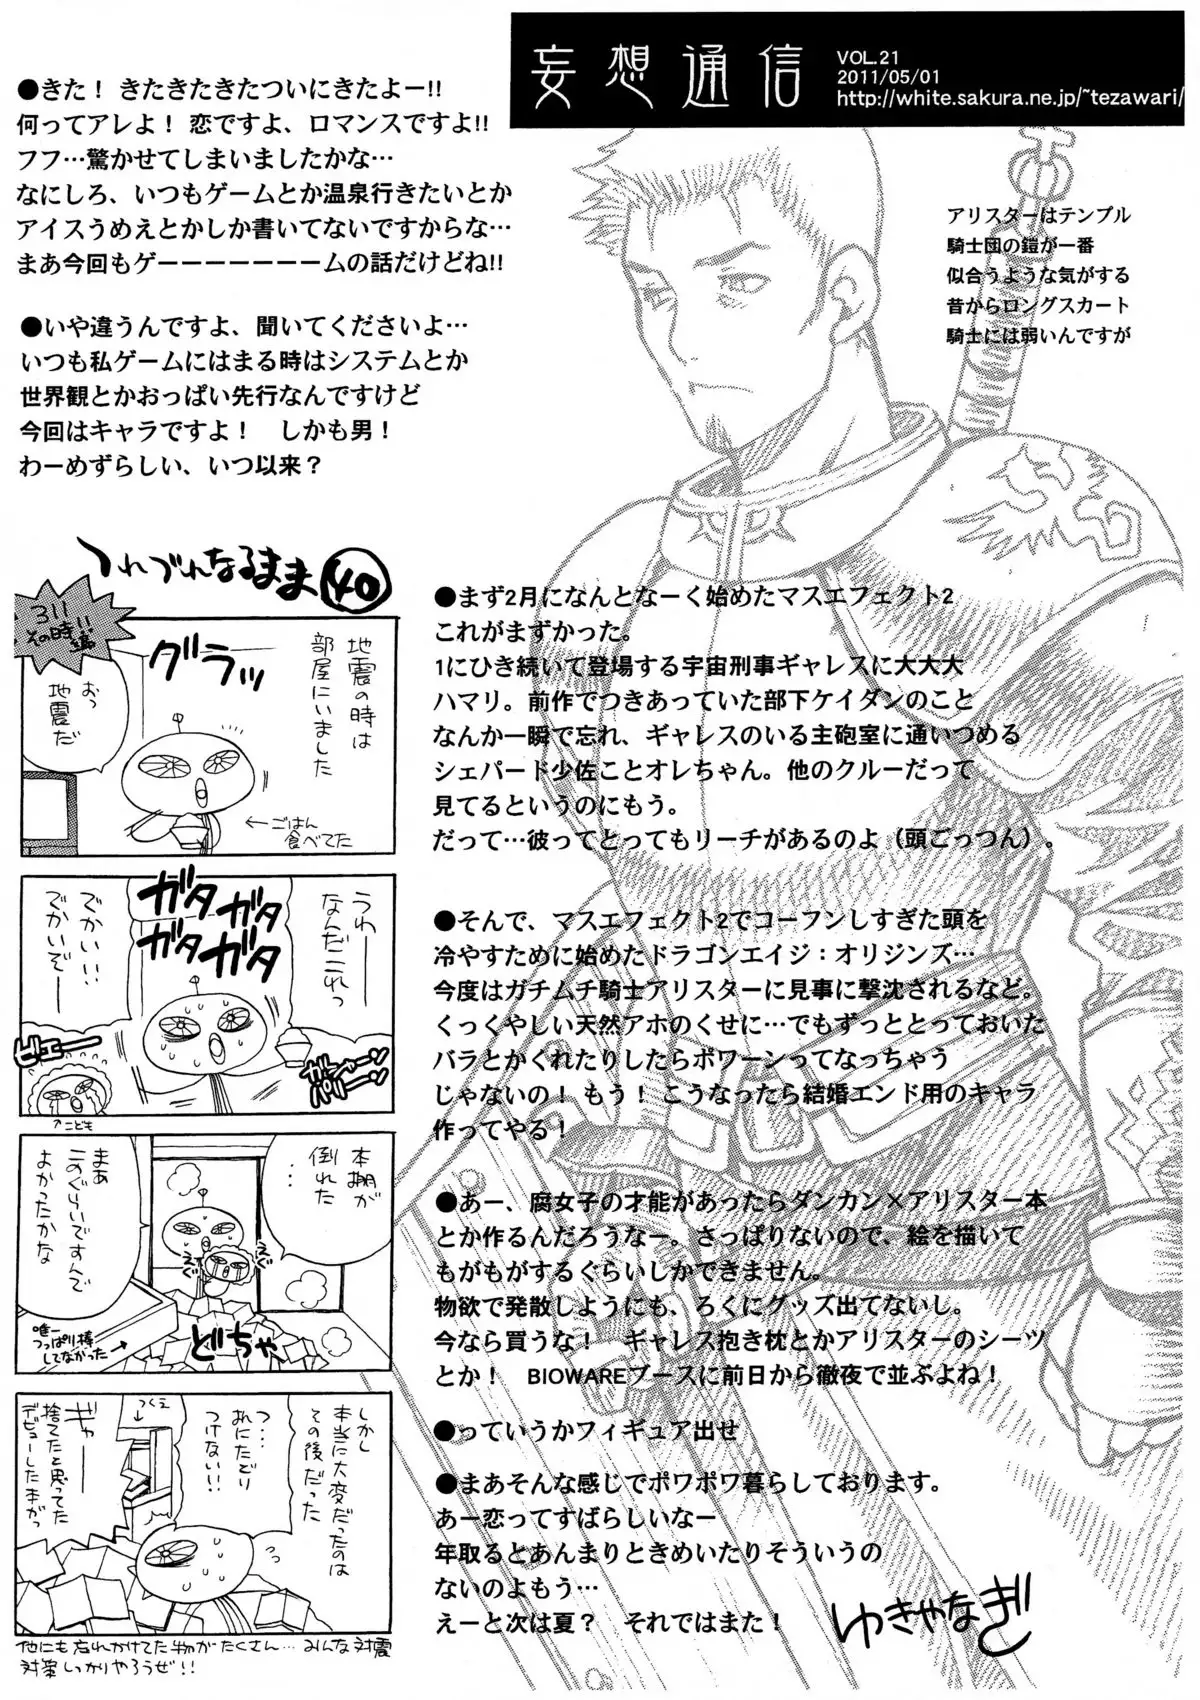 妄想通信
VOL.21
2011/05/01
http://white.sakura.ne.jp/~tezawari/
●きた！ きたきたきたついにきたよー!!
何ってアレよ！ 恋ですよ、ロマンスですよ!!
フフ…驚かせてしまいましたかな…
なにしろ、いつもゲームとか温泉行きたいとか
アイスうめえとかしか書いてないですからな…
まあ今回もゲーーーーーーームの話だけどね!!
●いや違うんですよ、聞いてくださいよ…
いつも私ゲームにはまる時はシステムとか
世界観とかおっぱい先行なんですけど
今回はキャラですよ！　しかも男！
わーめずらしい、いつ以来？
アリスターはテンプル
騎士団の鎧が一番
似合うような気がする
昔からロングスカート
騎士には弱いんですが
つれづれなるまま 40
3.11
その時!!
編
地震の時は
部屋にいました
グラッ
おっ
地震だ
←ごはん
食べてた
うわー
なんだこれっ
ガタガタ
ガタガタ
でかい!!
でかいぞー
ガシャーン
パリーン
ビエーー
↑こども
本棚が
倒れた
…
まあ
このぐらいですんで
よかったかな
えぐ
えぐ
どちゃ
唯一
つっぱり棒
してなかった
しかし
本当に大変だったのは
その後だった
つ…
つくえに
つけない!!
ギャー
捨てたと思ってた
デビューした本がっ
他にも忘れかけてた物がたくさん…みんな対震
対策しっかりやろうぜ!!
●まず2月になんとなーく始めたマスエフェクト2
これがまずかった。
1にひき続いて登場する宇宙刑事ギャレスに大大大
ハマリ。前作でつきあっていた部下ケイダンのこと
なんか一瞬で忘れ、ギャレスのいる主砲室に通いつめる
シェパード少佐ことオレちゃん。他のクルーだって
見てるというのにもう。
だって…彼ってとってもリーチがあるのよ（頭ごっつん）。
●そんで、マスエフェクト2でコーフンしすぎた頭を
冷やすために始めたドラゴンエイジ：オリジンズ…
今度はガチムチ騎士アリスターに見事に撃沈されるなど。
くっくやしい天然アホのくせに…でもずっととっておいた
バラとかくれたりしたらポワーンってなっちゃう
じゃないの！ もう！ こうなったら結婚エンド用のキャラ
作ってやる！
●あー、腐女子の才能があったらダンカン×アリスター本
とか作るんだろうなー。さっぱりないので、絵を描いて
もがもがするぐらいしかできません。
物欲で発散しようにも、ろくにグッズ出てないし。
今なら買うな！　ギャレス抱き枕とかアリスターのシーツ
とか！　BIOWAREブースに前日から徹夜で並ぶよね！
●っていうかフィギュア出せ
●まあそんな感じでポワポワ暮らしております。
あー恋ってすばらしいなー
年取るとあんまりときめいたりそういうの
ないのよもう…
えーと次は夏？　それではまた！
ゆきやなぎ